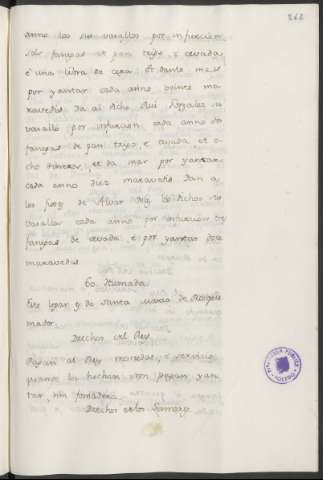 262
anno los sus vasallos por infurcion
seis fanegas de pan trigo, e cevada
e una libra de cera: et danle mas
por yantar cada anno quince ma-
ravedis. Da al dicho Rui Gonzalez su
vasallo por infurcion cada anno
fanegas de pan trigo, e cevada et o-
cho dineros, et da mas por yantar
cada anno diez maravedis. Dan a
los fijos de Alvar los dichos sus
vasallos cada anno por infurcion
fanegas de cevada, e por yantar doce
maravedis.
60. Humada
Este logar es de Santa Maria de
mador.
Derechos del Rey
Pagan al Rey monedas, e servicios
quando los hechan pagan yan-
tar nin fonsadera.
Derechos de los Sennores
BIBLIOTECA PUBLICA
TOLEDO